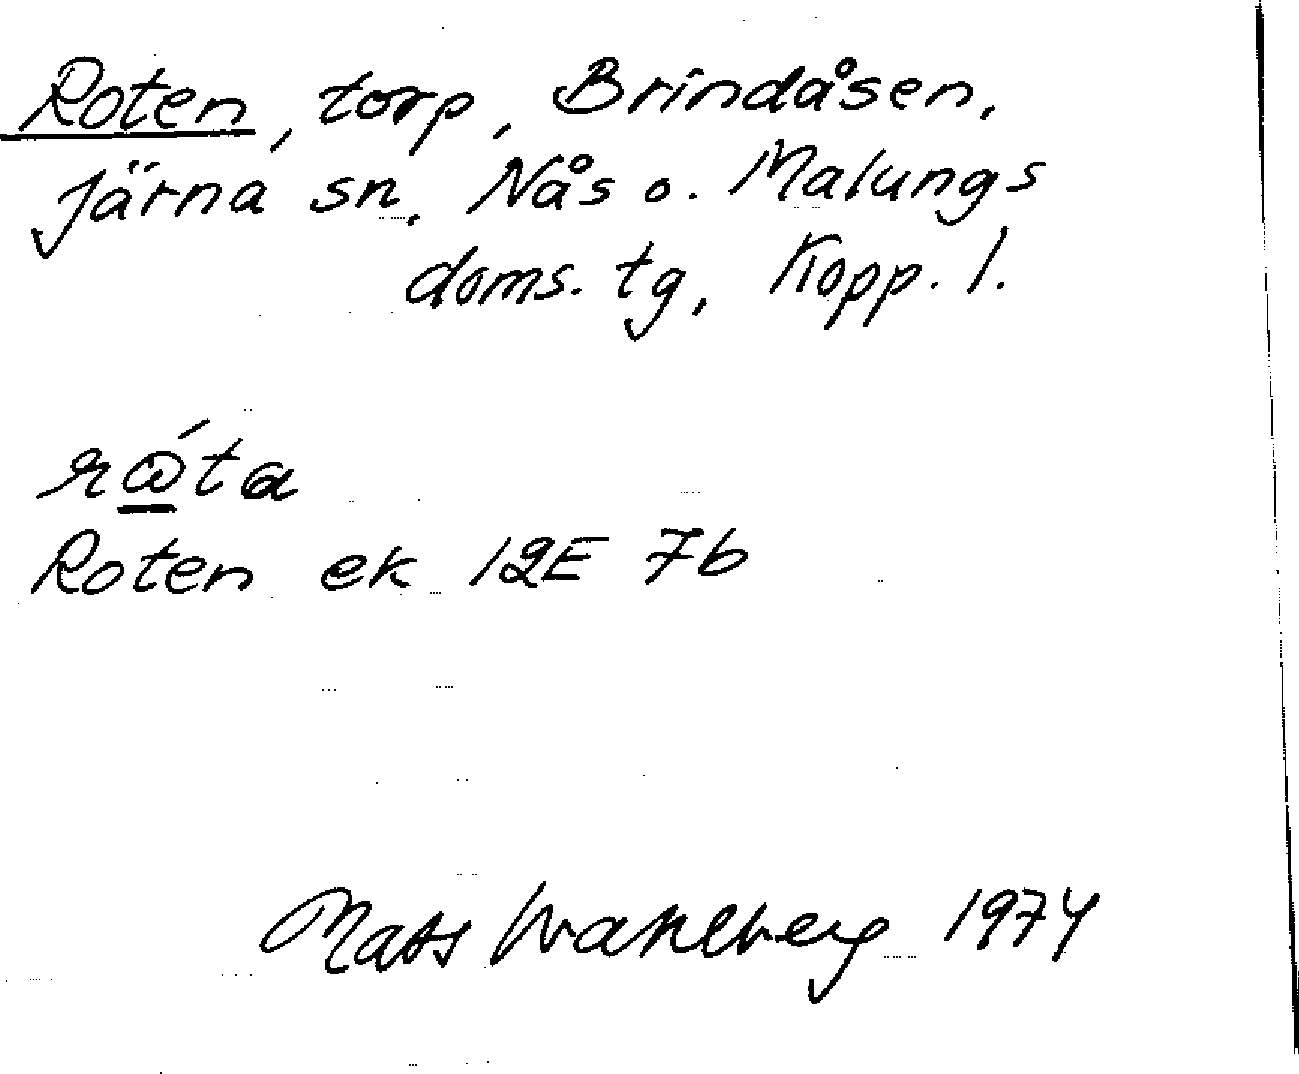 Roten, torp, Brindåsen,
Järna sn. Nås o. Malungs
doms. tg, Kopp. l.
rώta
Roten ek 12E 7b
Mats Wahlberg 1974